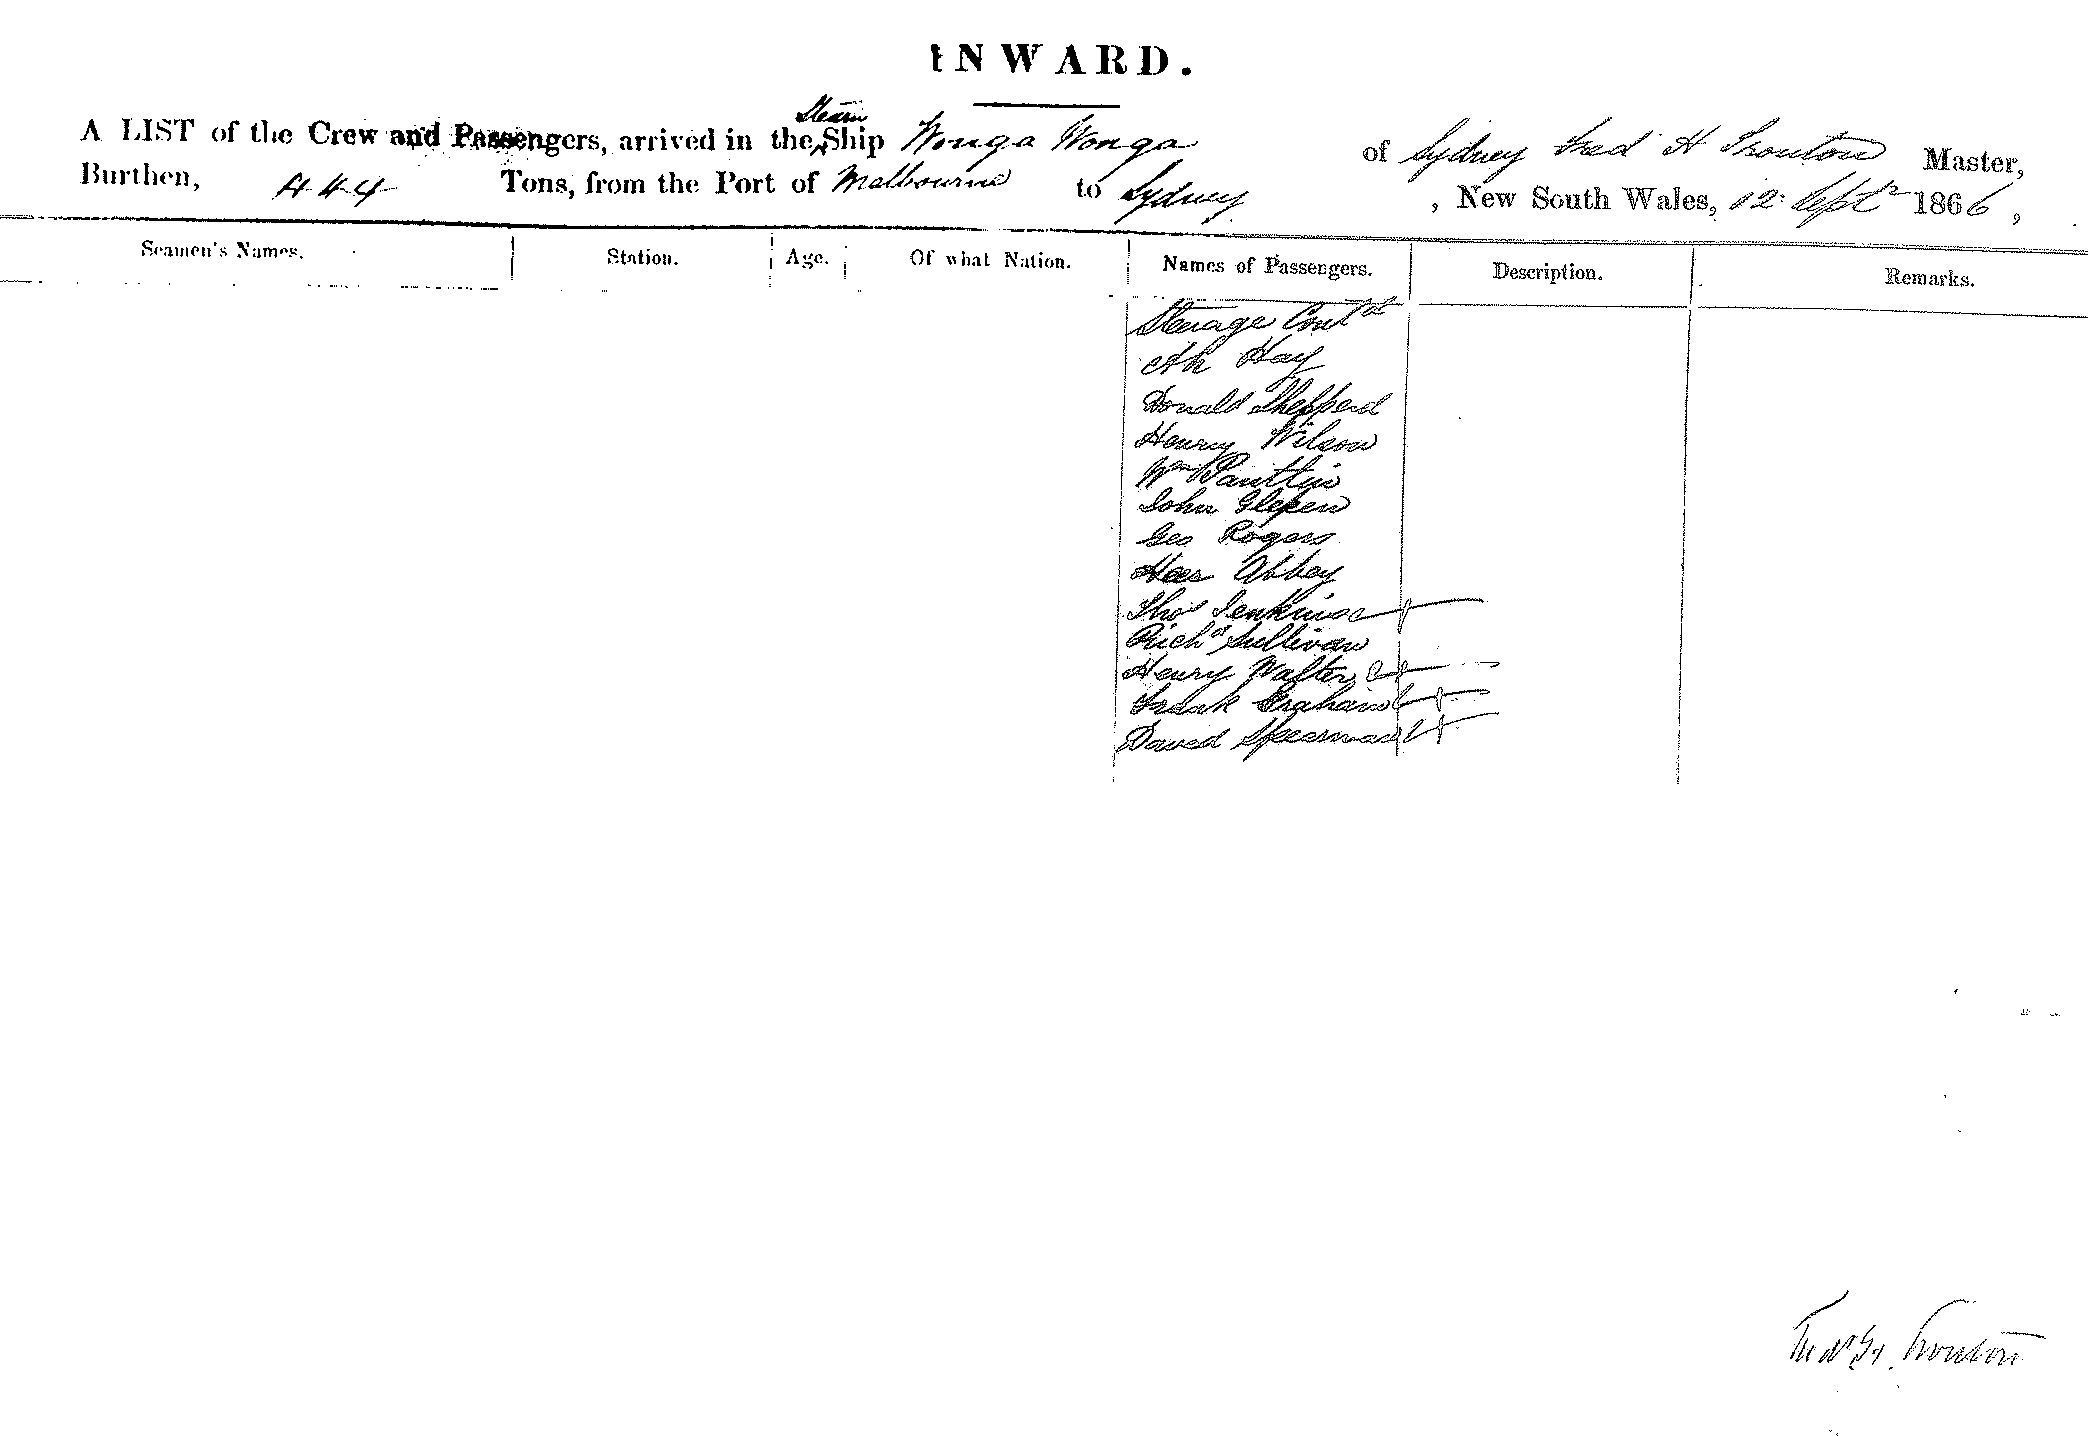 INWARD.
A LIST of the Crew and Passengers, arrived in the Steam Ship Wonga Wonga of Sydney Fred H Trouton Master,
Burthen, 444 Tons, from the Port of Melbourne to Sydney, New South Wales, 12 Sept 1866,
Seamen's Names. Station. Age. Of what Nation. Names of Passengers. Description. Remarks.
Steerage Contd
Ah Hay
Donald Shepperd
Henry Wilson
Wm Pantlin
John
Geo Rogers
Abbey
Thos Jenkins
Richd Sullivan
Henry Walter
Frank Graham
David Spearman
Fred H. Trouton